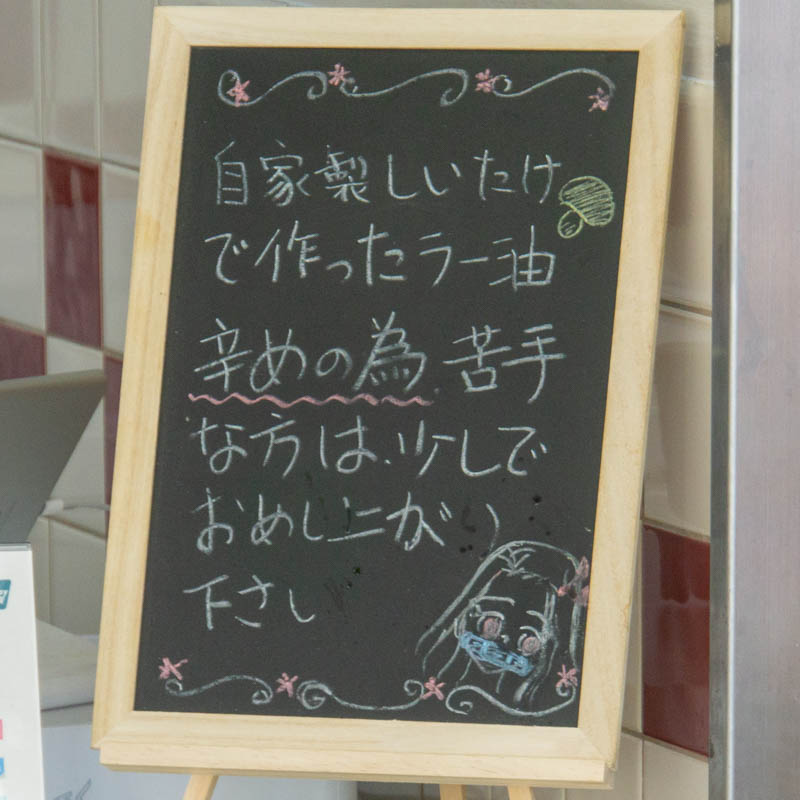 自家製しいたけ
で作ったラー油
辛めの為、苦手
な方は、少しで
おめし上がり
下さい